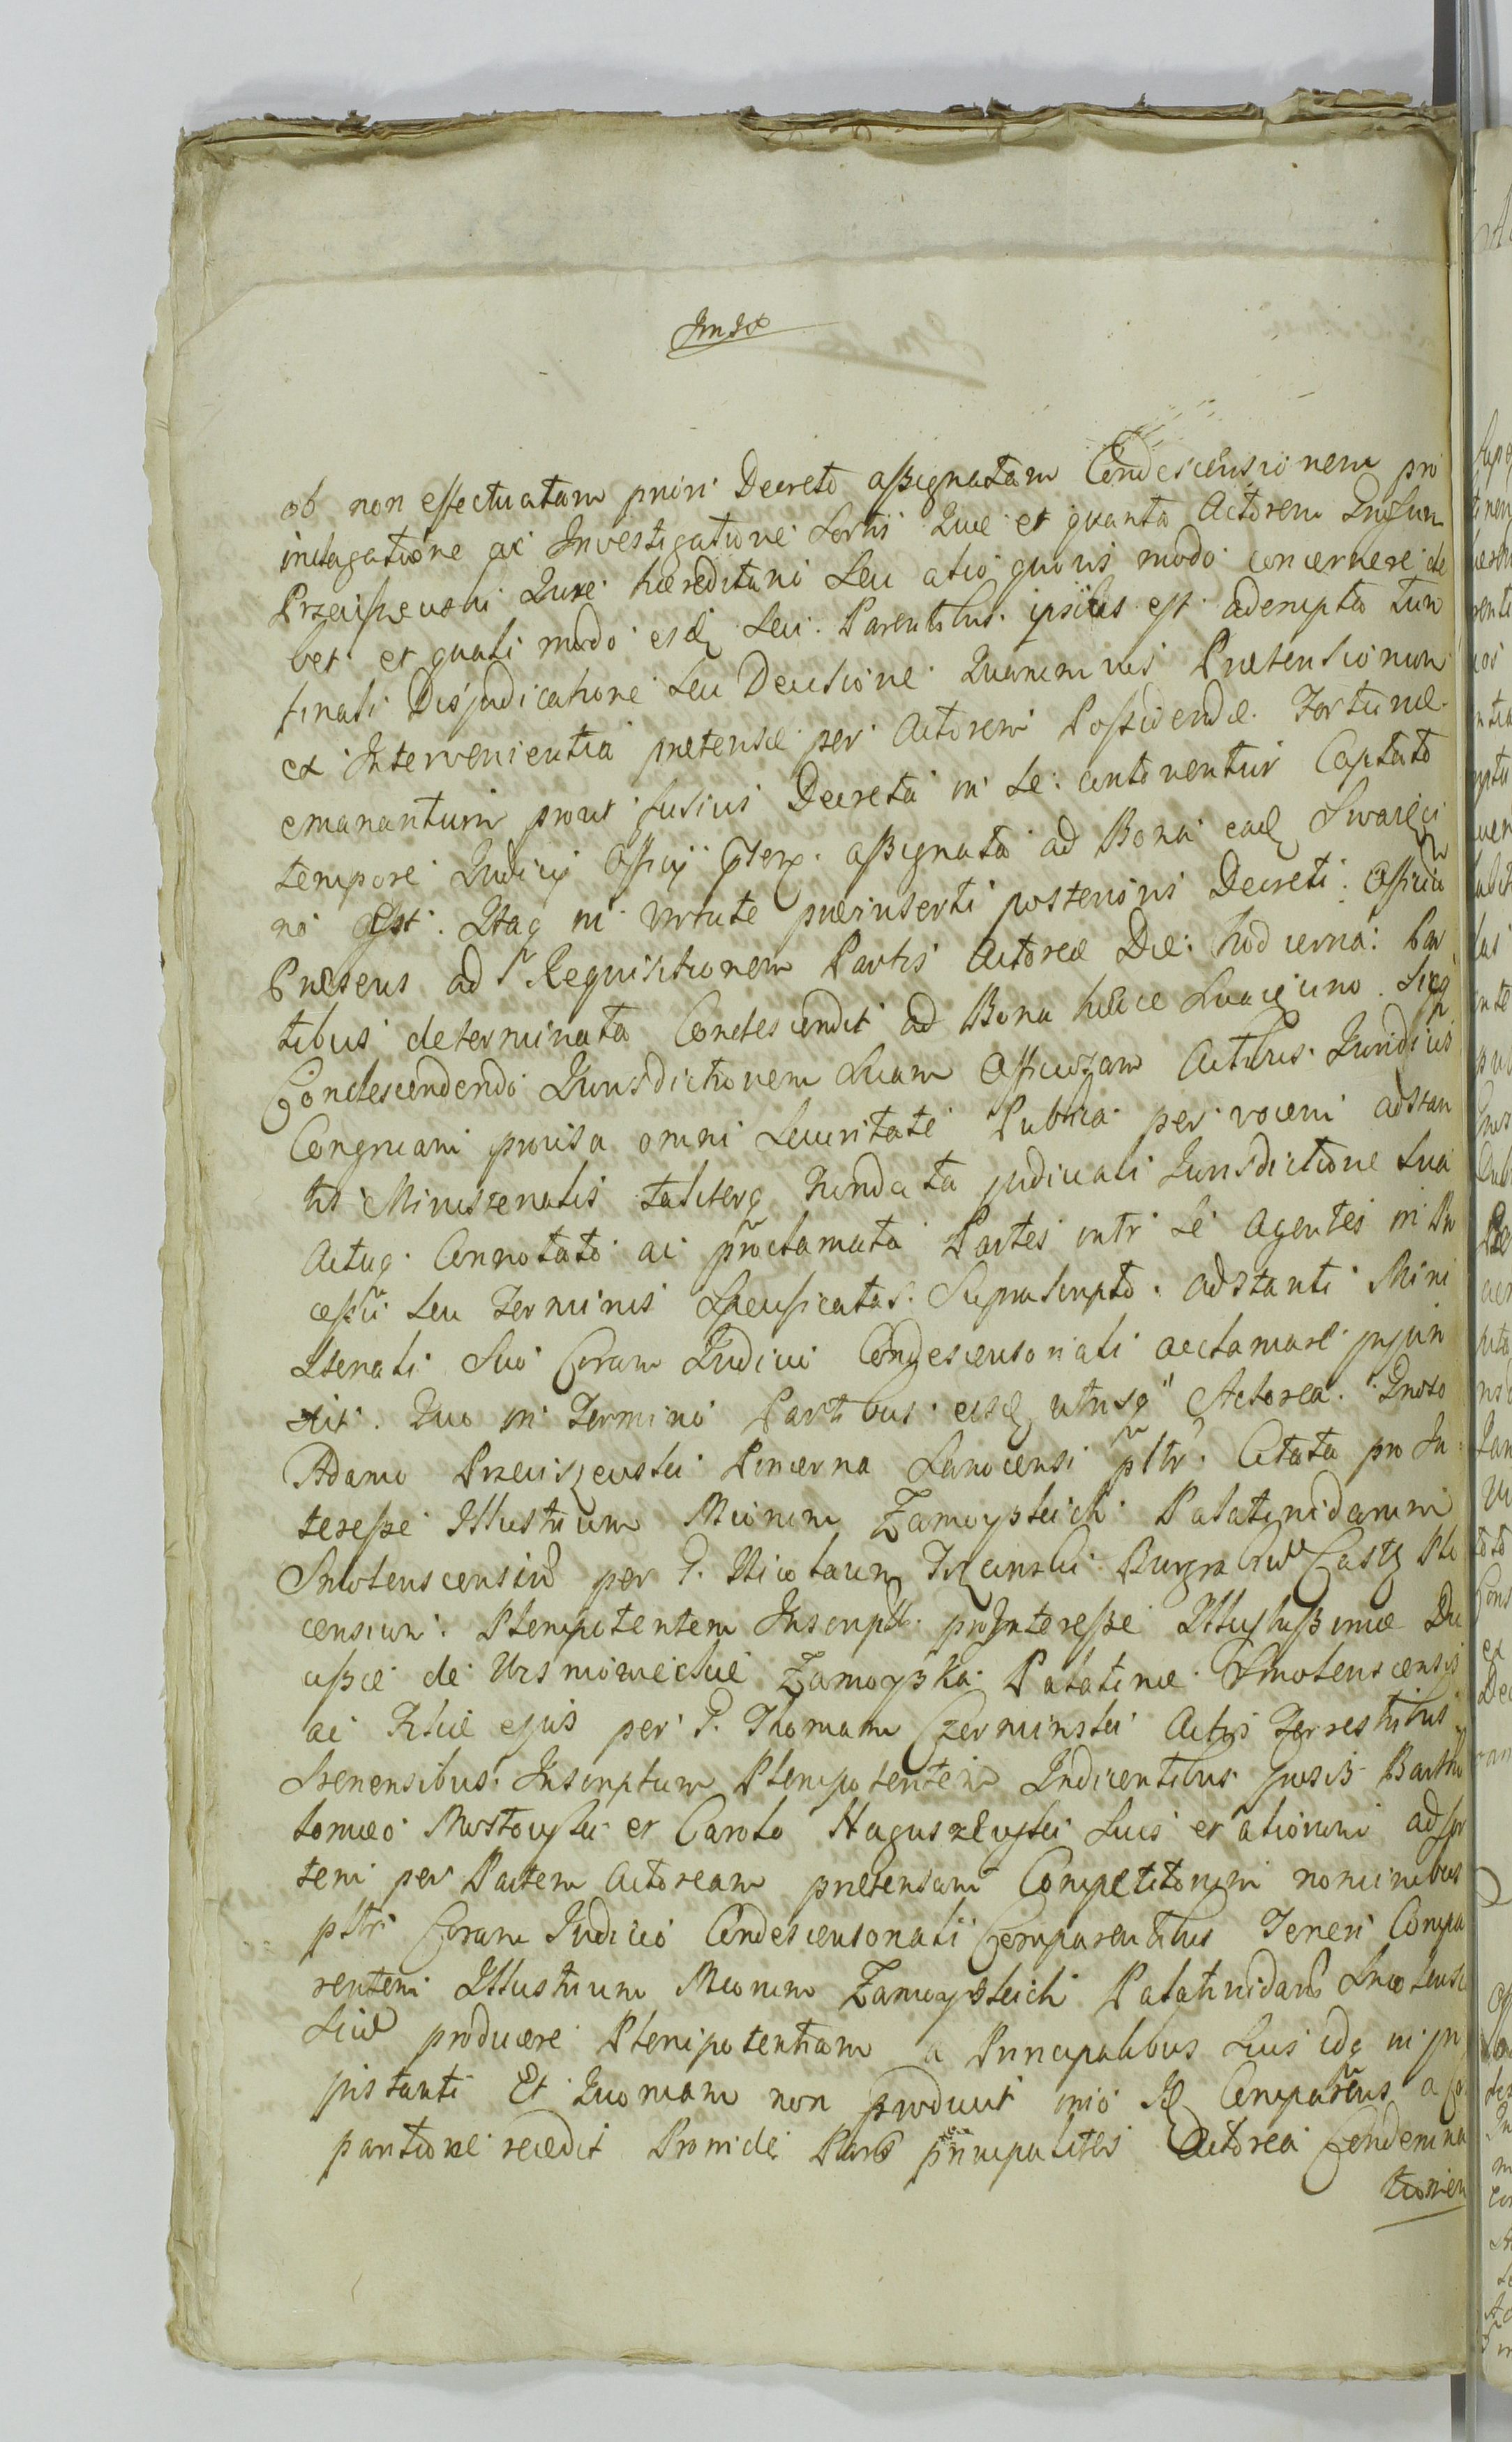 ob non effectuatam priori Decreto assignatam Condescensionem pro
indagatione ac Investigatione Sortis Quæ et quanta Actorem Gnosum
Przeciszewski Jure hæreditario Seu alio quovis modo concernere de
bet et quali modo eidq Seu Parentibus ipsius est adempta tum
finali Disjudicatione Seu Decisione Quarumvis Prætensionum
ex Intervenientia prætensæ per Actorem Possidendæ Fortunæ
emanantium prout fusius Decreta in Se continentur Captato
tempore Judicij Officij assignata ad Bona eadq
no est. Itaq in virtute præinserti posterioris Decreti Officiu
Præsens ad Requisitionem Partis Actoreæ Die hodierna Par
tibus determinata Condescendit ad Bona hæce Sicq
Condescendendo Jurisdictionem Suam Officiosam Actibus Juridicis
Congruam provisa omni Securitate Publica per vocem adstan
tis Ministerialis taliterq Fundata judiciali Jurisdictione Sua
Actuq Connotato ac proclamata Partes intr Se Agentes in Pro
cessu Seu Terminis Specificatas Suprascripto adstanti Mini
steriali Suo Coram Judicio Condescensoriali acclamare injun
xit. Quo in Termino Partibus eisdq utrisq Actorea Gnoso
Adamo Przeciszewski Pincerna Sanocensi pltr Citata pro In
teresse Illustrium Mcorum Zamoyskich Palatinidarum
Smolenscensium per G. Nicolaum Burgrabium Castq Plo
censium Plenipotentem Inscript. pro Interesse Illustrissimæ Du
cissæ de Wisniowieckie Zamoyska Palatinæ Smolenscensis
ac Filiæ ejus per G. Thomam Czerminski Actis Terrestribus
Srenensibus Inscriptum Plenipotentem Indicentibus Gnosis Bartho
lomæo Mostowski et Carolo Suis et aliorum ad Sor
tem per Partem Actoream prætensam Competitorum nominibus
pltr Coram Judicio Condescensoriali Comparentibus Teneri Compa
rentem Illustrium Mcorum Zamoyskich Palatinidarum Smolensce
Sium producere Plenipotentiam a Principalibus Suis idq in in
instanti Et Quoniam non producit imo Idq Comparens a Co
paritione recedit Proinde Pars principaliter Actorea Condemna
tionem